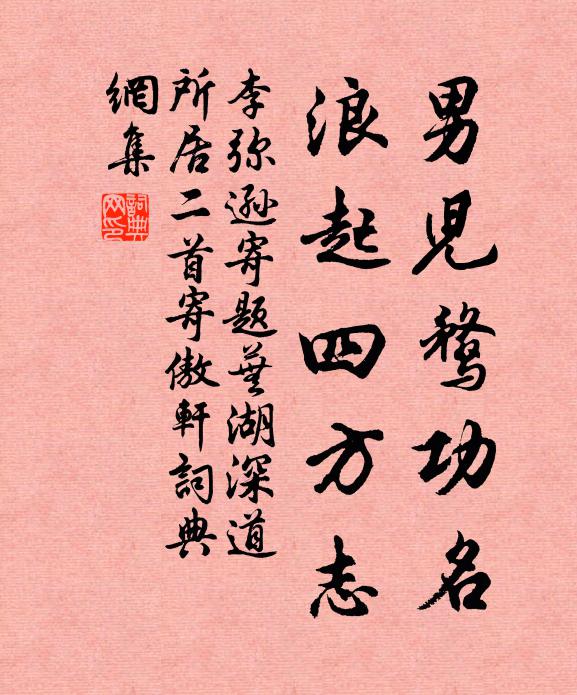 男児鶩功名
浪起四方志
李弥遜寄題蕪湖深道
所居二首寄傲軒詞典
網集
詞典網印